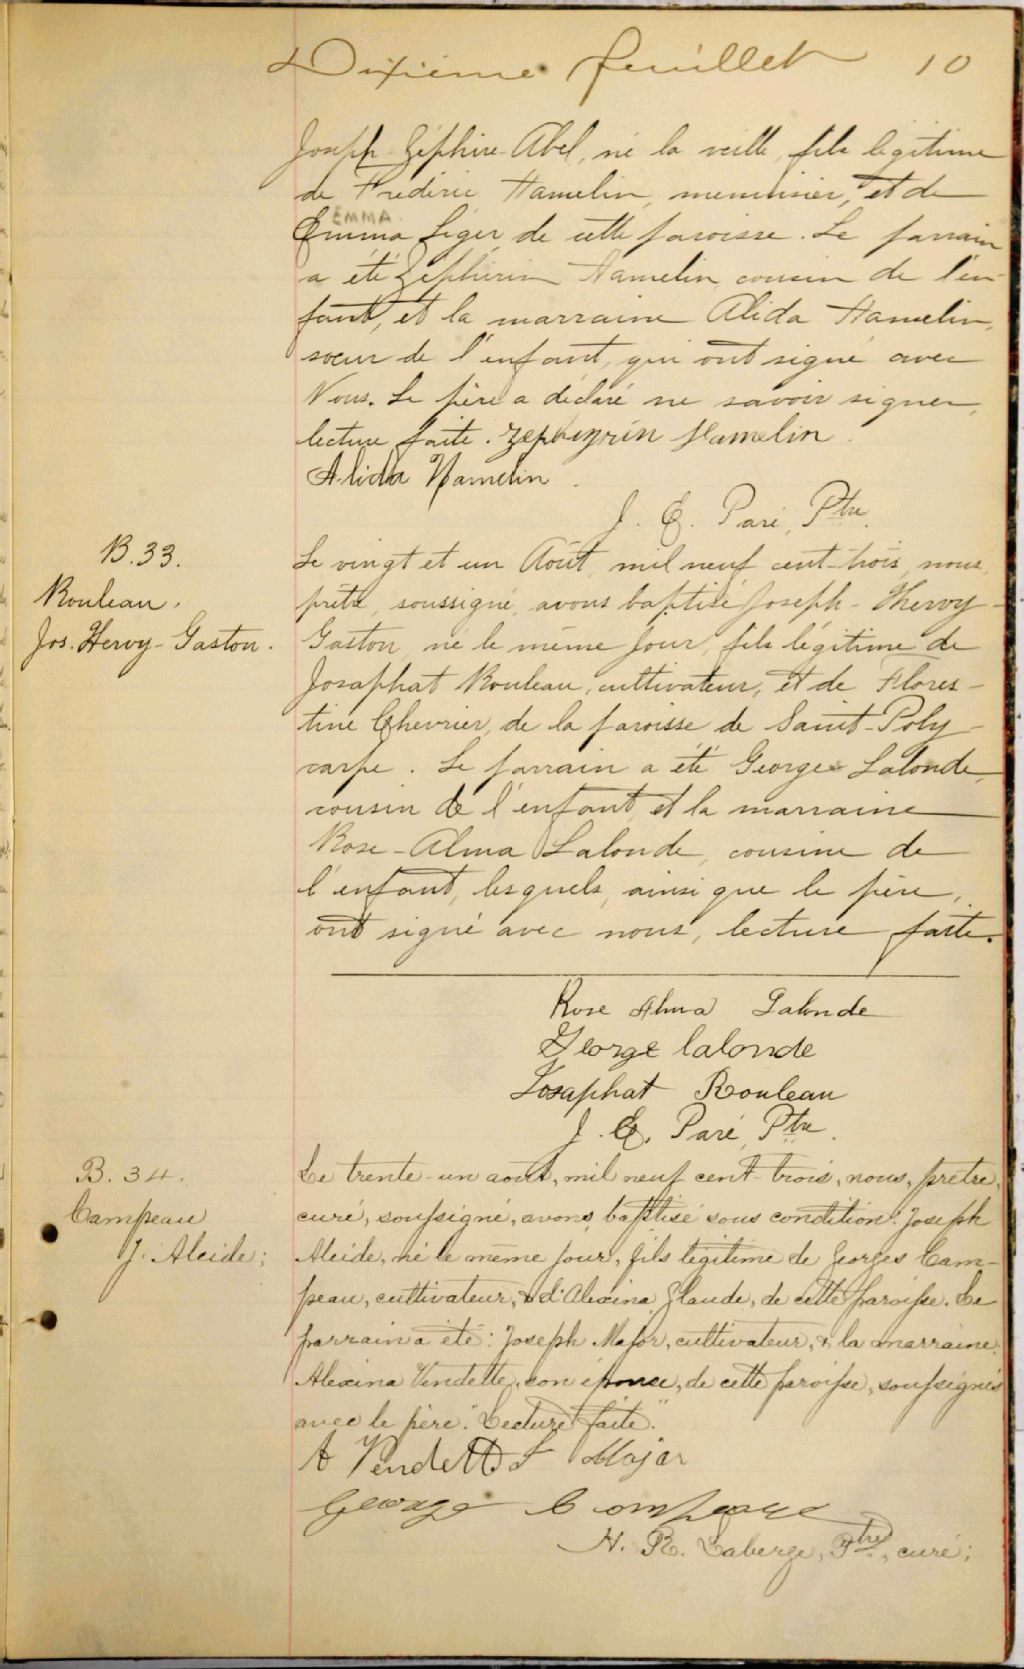 Dixième feuillet 10
Joseph Zéphire-Abel, né la veille, fils légitime
de Frédéric Hamelin, menuisier, et de
EMMA
Emma Léger, de cette paroisse. Le parrain
a été Zéphirin Hamelin, cousin de l'en-
fant, et la marraine Alida Hamelin,
soeur de l'enfant, qui ont signé avec
Nous. Le père a déclaré ne savoir signer,
lecture faite. Zepheyrin Hamelin.
Alida Hamelin.
J. E. Paré, Ptre.
B.33.
Rouleau,
Jos. Hervy-Gaston.
Le vingt et un Août, mil neuf cent-trois, nous,
prêtre, soussigné, avons baptisé Joseph-Thervy-
Gaston, né le même jour, fils légitime de
Josaphat Rouleau, cultivateur, et de Flores-
tine Chevrier, de la paroisse de Saint-Poly-
carpe. Le parrain a été George Lalonde,
cousin de l'enfant, et la marraine
Rose-Alma Lalonde, cousine de
l'enfant, lesquels, ainsi que le père,
ont signé avec nous, lecture faite.
Rose Alma Lalonde
George lalonde
Josaphat Rouleau
J. E. Paré, Ptre.
B. 34.
Campeau
J. Alcide;
Le trente-un août, mil neuf cent-trois, nous, prêtre,
curé, soussigné, avons baptisé sous condition: Joseph
Alcide, né le même jour, fils légitime de Georges Cam-
peau, cultivateur, & d'Alexina Glaude, de cette paroisse. Le
parrain a été: Joseph Major, cultivateur, & la marraine:
Alexina Vendette, son épouse, de cette paroisse, soussignés
avec le père. "Lecture faite."
A Vendette J Major
George Campeau
H. R. Laberge, Ptre, curé;